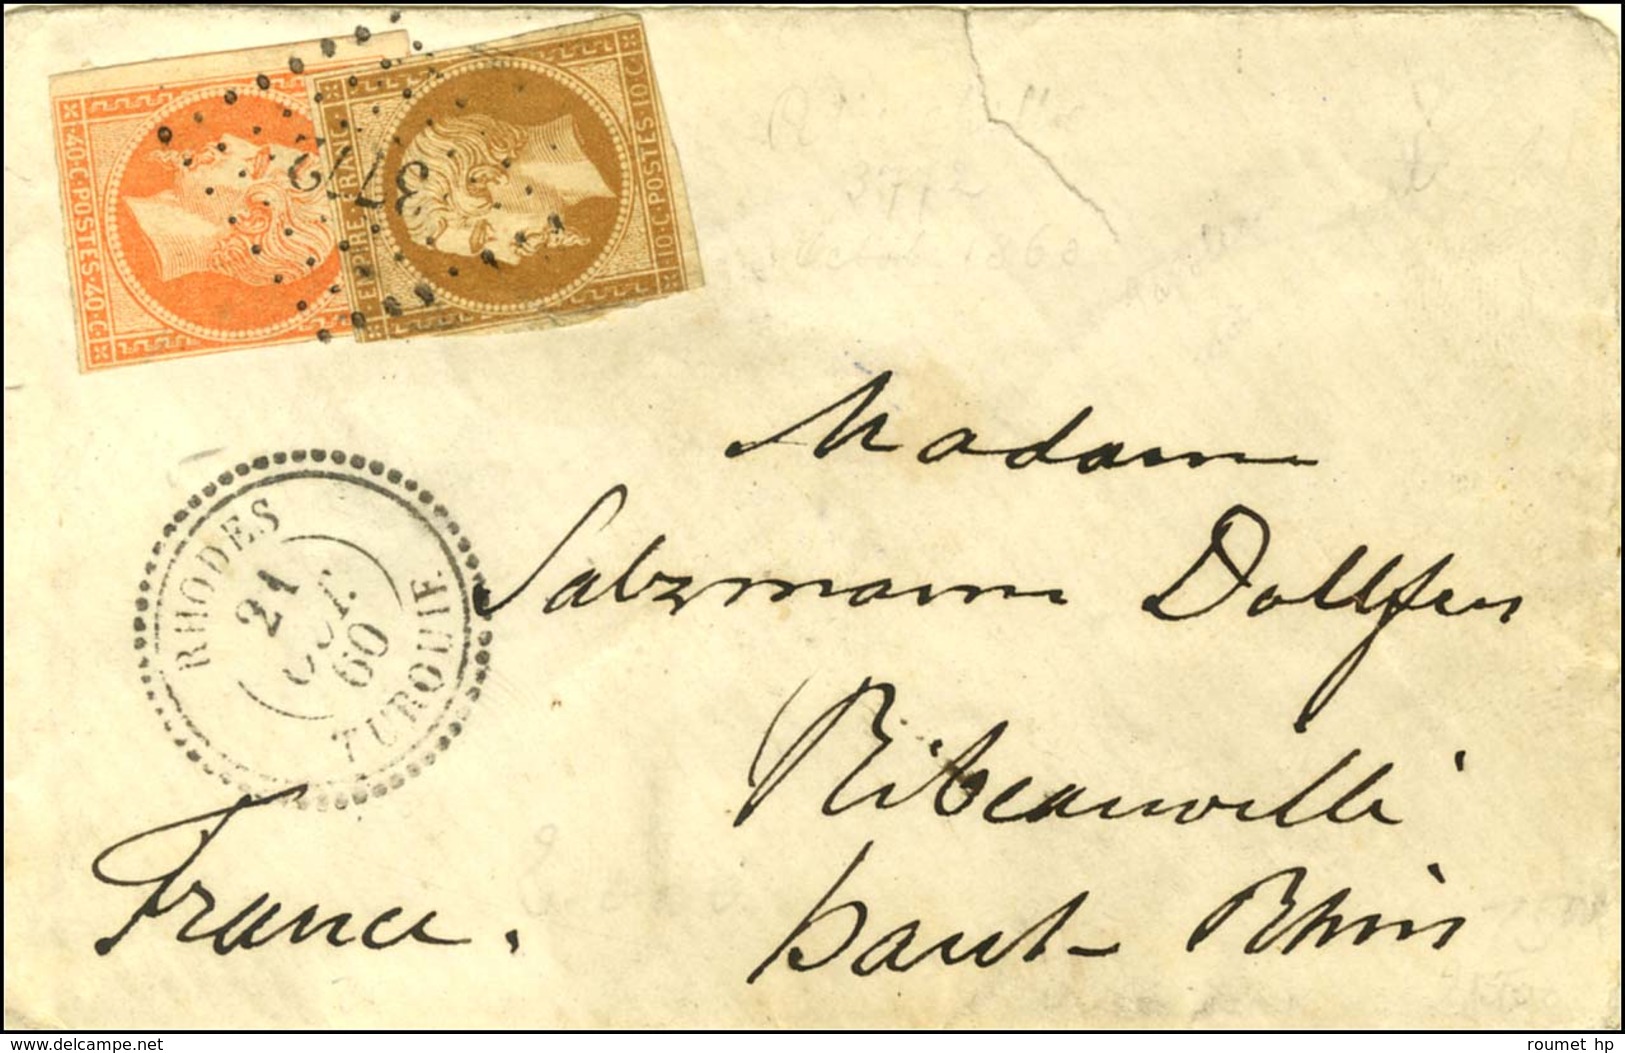 40·C·POSTES·40·C·
EMPIRE·FRANC·
10·C·POSTES·10·C·
3772
3772
RHODES
21
OCT.
60
TURQUIE
Madame
Salzmann Dollfus
Ribeauvillé
haut-Rhin
France.
delcampe.net
roumet hp